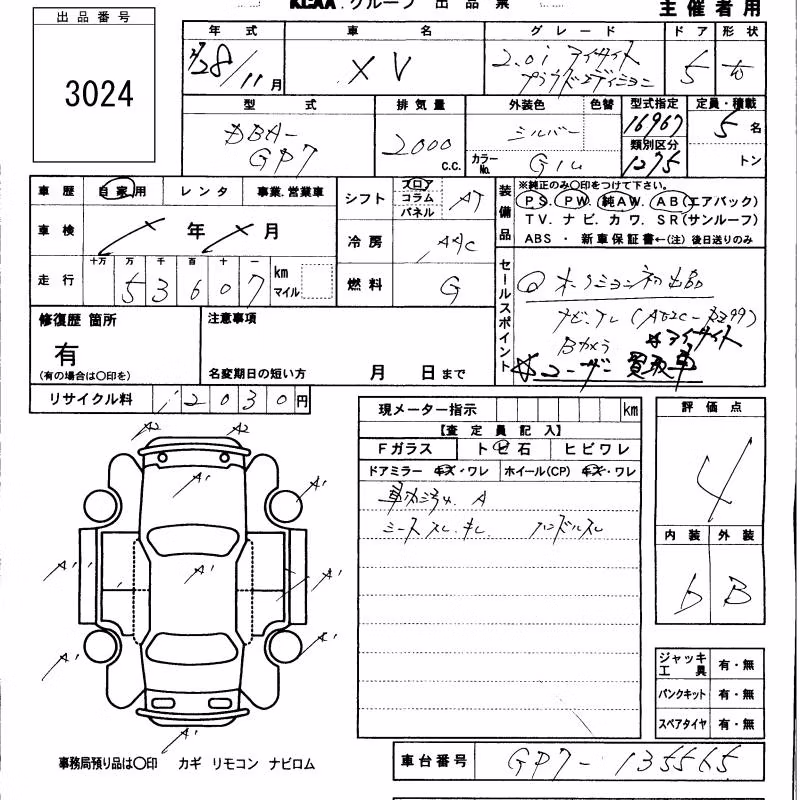 KCAA.グループ 出品票
主催者用
出品番号
3024
年式 車名 グレード ドア 形状
28/11月 XV 2.0i アイサイト プラウドエディション 5
型式 排気量 外装色 色替 型式指定 定員・積載
DBA-GP7 2000 c.c. シルバー 16967 5名
カラーNo. G1U 類別区分 1275 トン
車歴 自家用 レンタ 事業.営業車
シフト フロア コラム パネル AT
車検 年 月
冷房 AAC
走行 十万 万 千 百 十 一
53607 km マイル
燃料 G
装備品
※純正のみ〇印をつけて下さい。
PS. PW. 純AW. AB(エアバック)
TV.ナビ.カワ.SR(サンルーフ)
ABS・新車保証書←(注)後日送りのみ
セールスポイント
オークション初出品
ナビ・TV
Bカメラ ☆アイサイト
☆ユーザー買取車
修復歴 箇所
有
(有の場合は〇印を)
注意事項
名変期日の短い方 月 日まで
リサイクル料 12030円
現メーター指示 km
【査定員記入】
Fガラス トビ石 ヒビワレ
ドアミラー キズ・ワレ ホイール(CP) キズ・ワレ
シートスレ.キレ ハンドルスレ
評価点
4
内装 外装
b B
A2 A2
A1
A1 A1 A1
A1 A1
A1
ジャッキ工具 有・無
パンクキット 有・無
スペアタイヤ 有・無
事務局預り品は〇印 カギ リモコン ナビロム
車台番号 GP7-135565